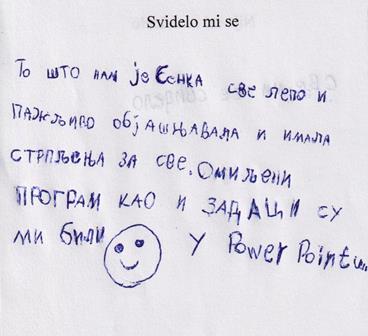 Svidelo mi se
То што нам је Сенка све лепо и
пажљиво објашњавала и имала
стрпљења за све. Омиљени
програм као и задаци су
ми били у Power Pointu...